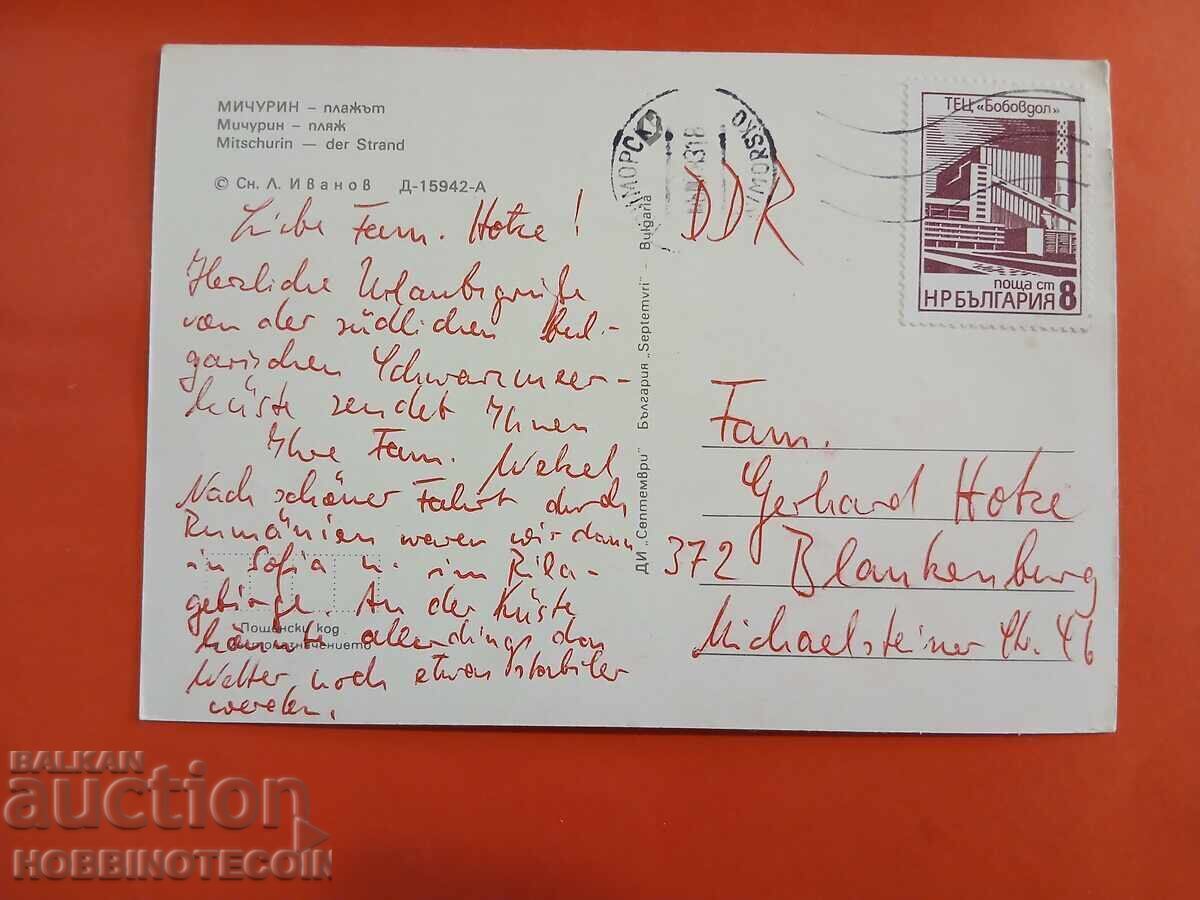 МИЧУРИН – плажът
Мичурин – пляж
Mitschurin — der Strand
© Сн. Л. Иванов Д-15942-А
Liebe Fam. Hotze!
Herzliche Urlaubsgrüße
von der südlichen bul-
garischen Schwarzmeer-
küste sendet Ihnen
Ihre Fam. Wekel
Nach schöner Fahrt durch
Rumänien waren wir dann
in Sofia u. im Rila-
gebirge. An der Küste
könnte allerdings das
Wetter noch etwas stabiler
werden.
Пощенски код
ДИ „Септември" България „Septemvri" – Bulgaria
DDR
ТЕЦ «Бобовдол»
поща ст
НР БЪЛГАРИЯ 8
Fam.
Gerhard Hotze
372 Blankenburg
Michaelsteiner Str. 46
BALKAN
auction
HOBBINOTECOIN